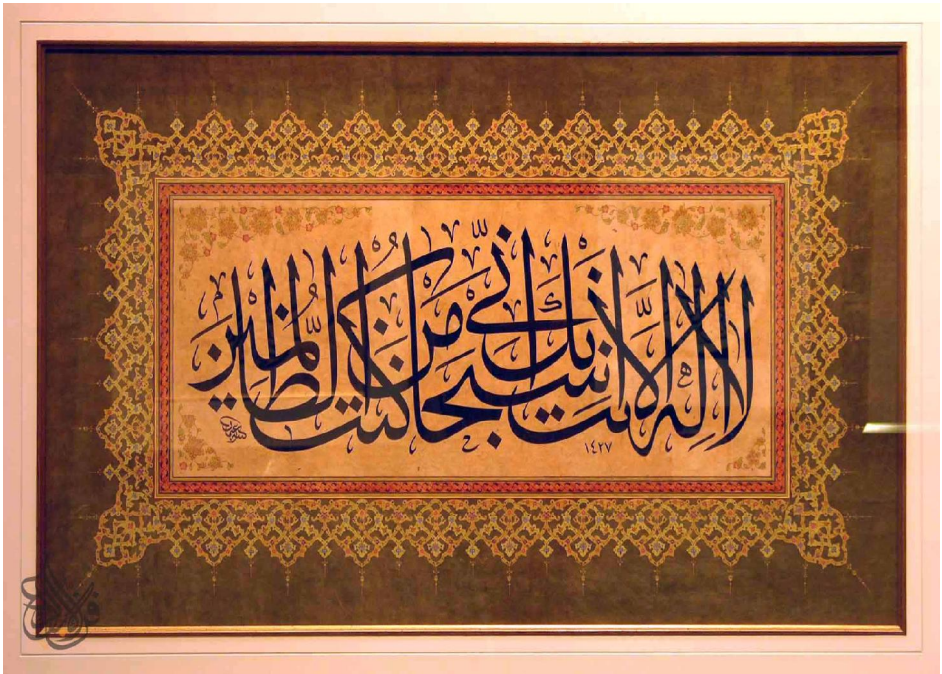 لا إله إلا أنت سبحانك إني كنت من الظالمين
١٤٢٧